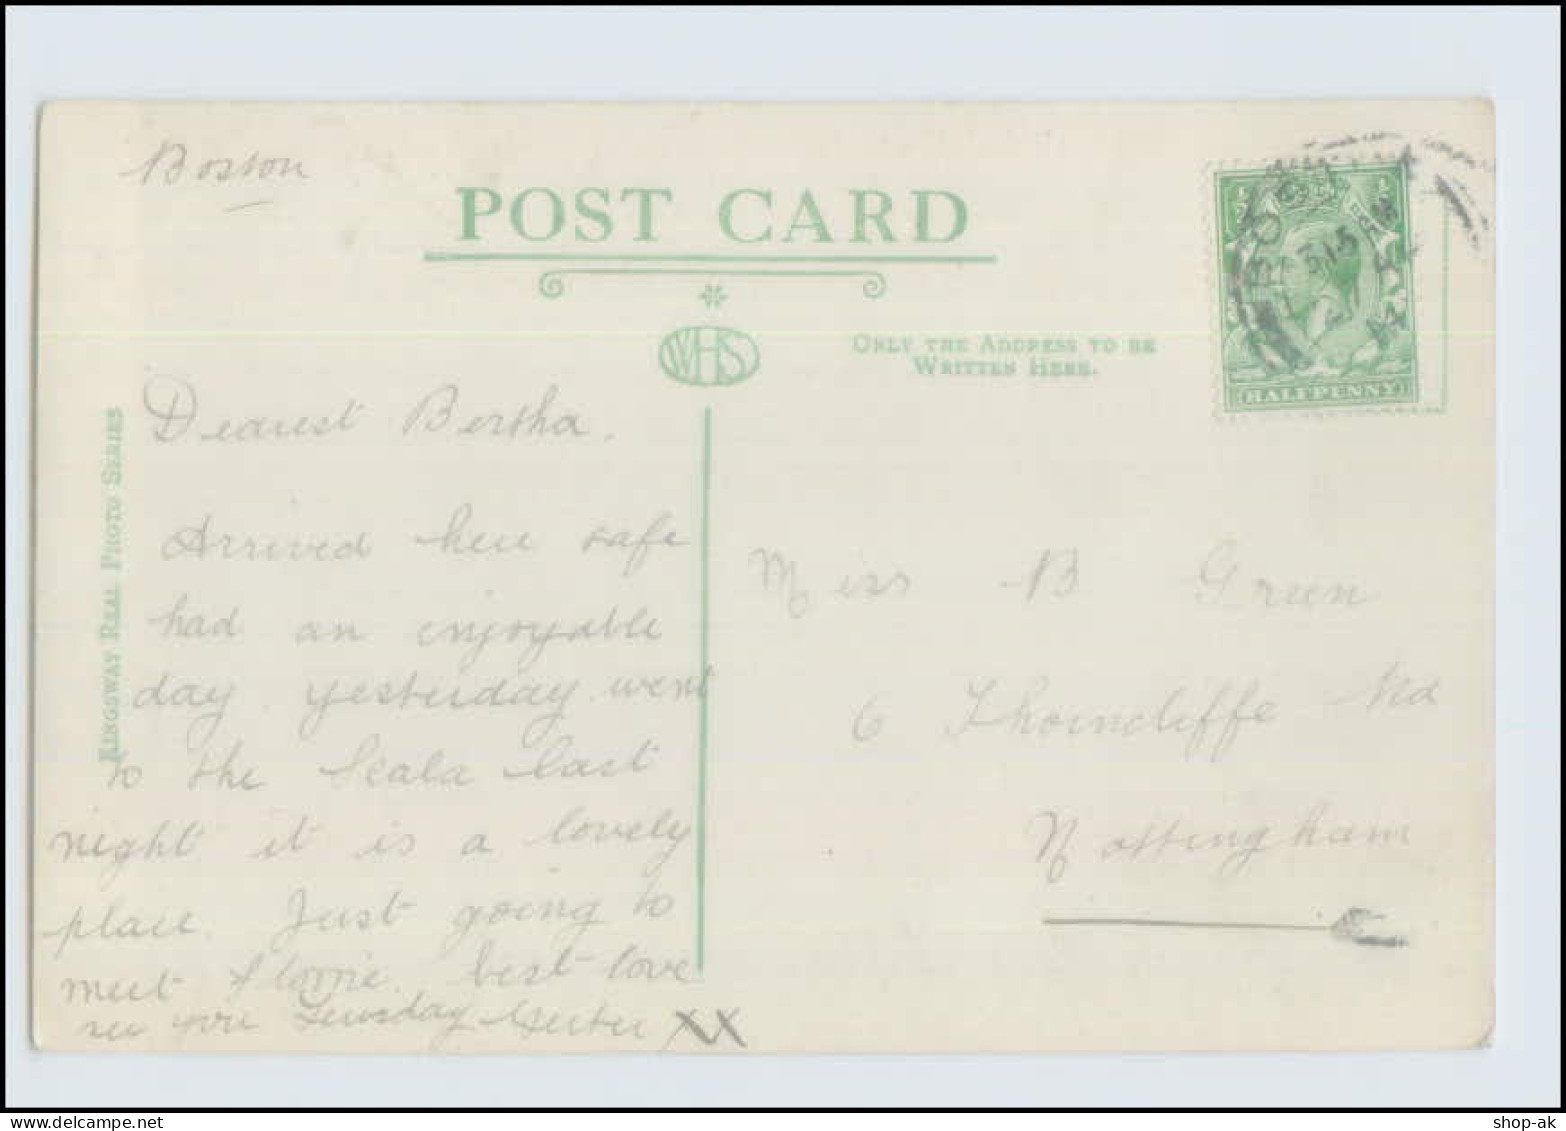 Boston
POST CARD
WHS
ONLY THE ADDRESS TO BE
WRITTEN HERE.
HALFPENNY
KINGSWAY REAL PHOTO SERIES
Dearest Bertha.
Arrived here safe
had an enjoyable
day yesterday. went
to the Scala last
night it is a lovely
place. Just going to
meet Florrie. best love
see you Tuesday XX
Miss B Green
6 Thorncliffe Rd
Nottingham
shop-ak